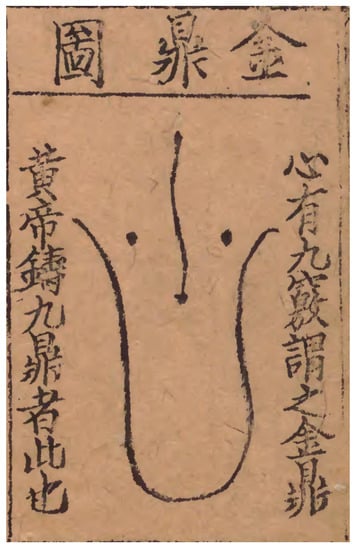 金鼎圖
心有九竅謂之金鼎
黃帝鑄九鼎者此也